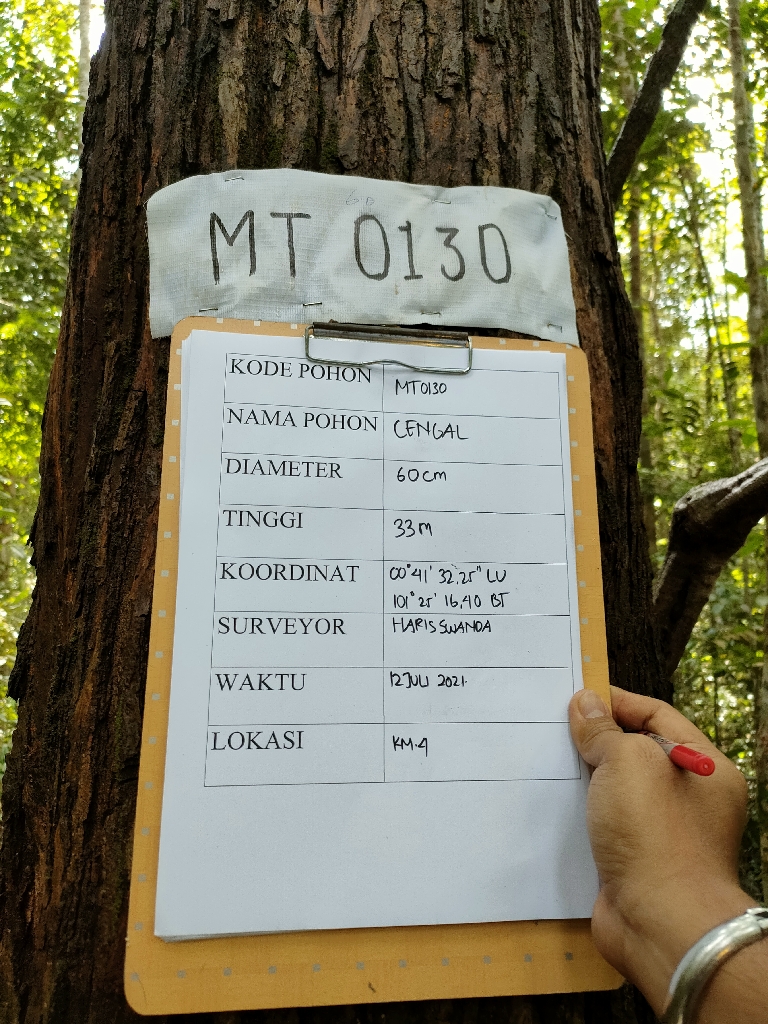 MT 0130
KODE POHON MT0130
NAMA POHON CENGAL
DIAMETER 60cm
TINGGI 33M
KOORDINAT 00°41' 32,25" LU
101°25' 16,40 BT
SURVEYOR HARIS SWANDA
WAKTU 12 JULI 2021
LOKASI KM.4